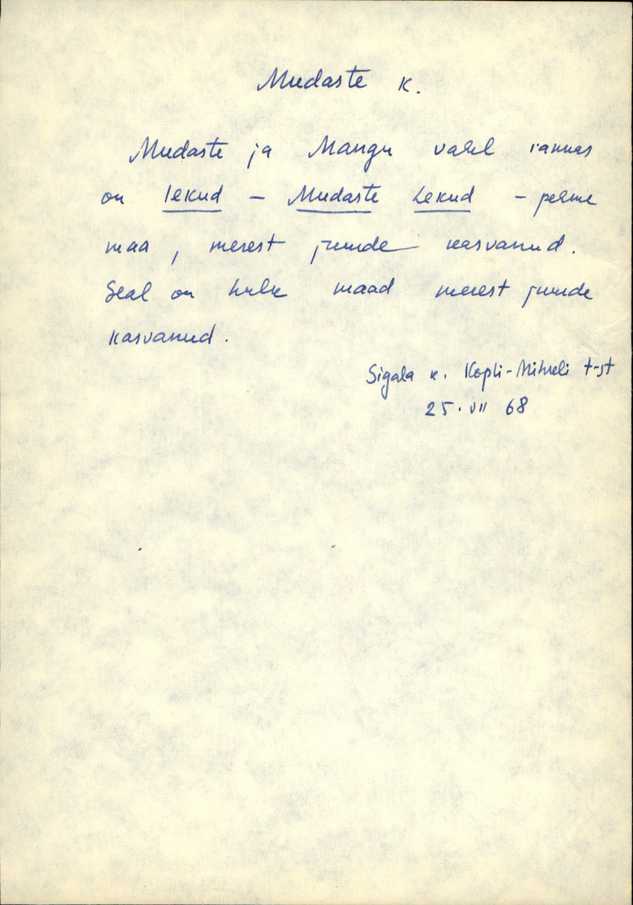 Mudaste k.
Mudaste ja Mangu vahel rannas
on lekud - Mudaste Lekud - pehme
maa, merest juurde kasvanud.
Seal on hulk maad merest juurde
kasvanud.
Sigala k. Kopli-Mihkli t-st
25. VII 68